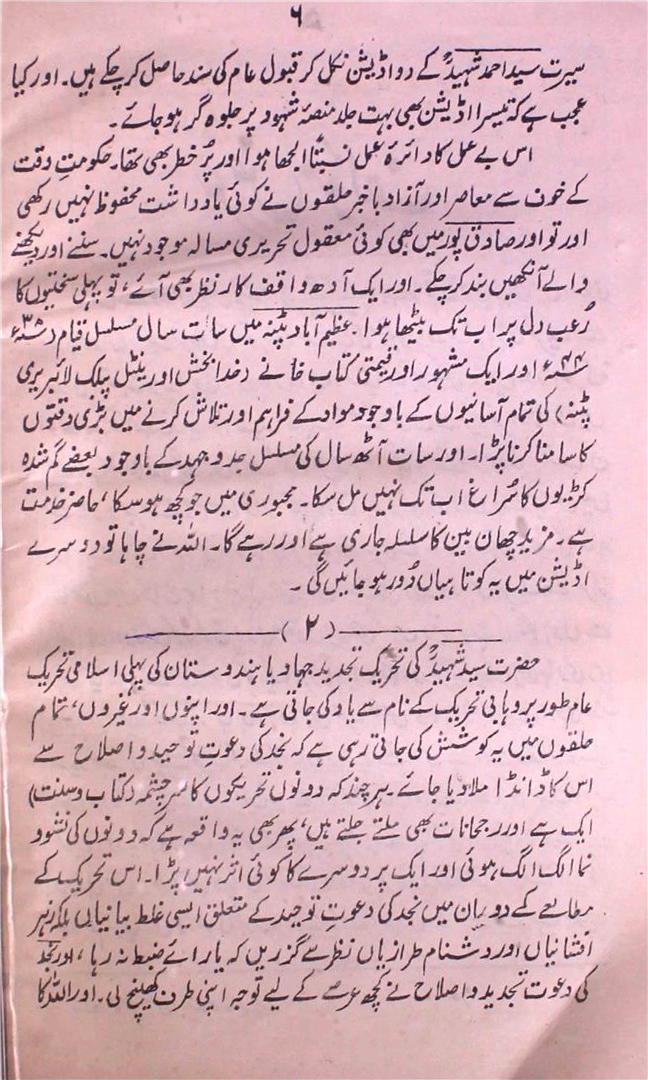 ۶
سیرت سید احمد شہیدؒ کے دو اڈیشن نکل کر قبول عام کی سند حاصل کر چکے ہیں۔ اور کیا
عجب ہے کہ تیسرا اڈیشن بھی بہت جلد منصۂ شہود پر جلوہ گر ہو جائے۔
اس بے عمل کا دائرۂ عمل نسبتاً الجھا ہوا اور پُر خطر بھی تھا۔ حکومتِ وقت
کے خوف سے معاصر اور آزاد باخبر حلقوں نے کوئی یادداشت محفوظ نہیں رکھی
اور تو اور صادق پور میں بھی کوئی معقول تحریری مسالہ موجود نہیں۔ سننے اور دیکھنے
والے آنکھیں بند کر چکے۔ اور ایک آدھ واقف کار نظر بھی آئے، تو پہلی سختیوں کا
رُعب دل پر اب تک بیٹھا ہوا۔ عظیم آباد پٹنہ میں سات سال مسلسل قیام (۳۸ء
۴۴ء اور ایک مشہور اور قیمتی کتاب خانے (خدا بخش اورینٹل پبلک لائبریری
پٹنہ) کی تمام آسانیوں کے باوجود مواد کے فراہم اور تلاش کرنے میں بڑی دقتوں
کا سامنا کرنا پڑا۔ اور سات آٹھ سال کی مسلسل جدوجہد کے باوجود بعضے گم شدہ
کڑیوں کا سُراغ اب تک نہیں مل سکا۔ مجبوری میں جو کچھ ہو سکا، حاضرِ خدمت
ہے۔ مزید چھان بین کا سلسلہ جاری ہے اور رہے گا۔ اللہ نے چاہا تو دوسرے
اڈیشن میں یہ کوتاہیاں دُور ہو جائیں گی۔
(۲)
حضرت سید شہیدؒ کی تحریک تجدیدِ جہاد یا ہندوستان کی پہلی اسلامی تحریک
عام طور پر وہابی تحریک کے نام سے یاد کی جاتی ہے۔ اور اپنوں اور غیروں، تمام
حلقوں میں یہ کوشش کی جاتی رہی ہے کہ نجد کی دعوتِ توحید و اصلاح سے
اس کا ڈانڈا ملا دیا جائے۔ ہر چند کہ دونوں تحریکوں کا سرچشمہ (کتاب و سنت)
ایک ہے اور رجحانات بھی ملتے جلتے ہیں، پھر بھی یہ واقعہ ہے کہ دونوں کی نشوو
نما الگ الگ ہوئی اور ایک پر دوسرے کا کوئی اثر نہیں پڑا۔ اس تحریک کے
مطالعے کے دوران میں نجد کی دعوتِ توحید کے متعلق ایسی غلط بیانیاں بلکہ زہر
افشانیاں اور دشنام طرازیاں نظر سے گزریں کہ یارائے ضبط نہ رہا، اور نجد
کی دعوت تجدید و اصلاح نے کچھ عرصے کے لیے توجہ اپنی طرف کھینچ لی۔ اور اللہ کا